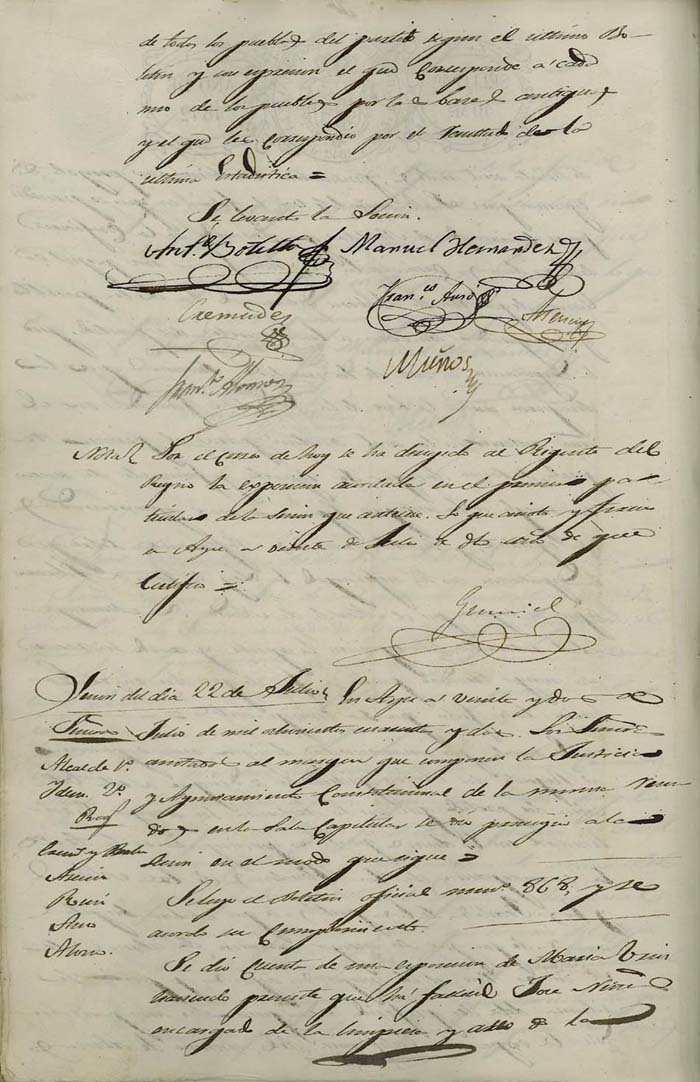 de todos los pueblos del partido segun el ultimo Bo-
letin y con espresion el que corresponde á cada
uno de los pueblos por la base antigua,
y el que les correspondio por el resultado de la
ultima Estadistica =
Se levantó la Sesion.
Manuel Hernandez
Cremades
Fran.co
Muños
Nota Por el correo de hoy se ha dirigido al Regente del
Reyno la esposicion acordada en el primer par-
ticular de la Sesion que antecede. Lo que anoto y firmo
en Aspe a veinte de Julio de que
Certifico =
Sesion del dia 22 de Julio En Aspe a veinte y dos de
Señores Julio de mil ochocientos cuarenta y dos. Los Señores
Alcalde 1º anotados al margen que componen la Justicia
Idem 2º y Ayuntamiento Constitucional de la misma reuni-
Reg.s dos en la Sala Capitular se dio principio a la
sesion en el modo que sigue =
Se leyo el Boletin oficial num.º 868, y se
acordo su cumplimiento.
Alonso.
Se dio cuenta de una esposicion de Maria
haciendo presente que ha José
encargado de la limpieza y aseo de la